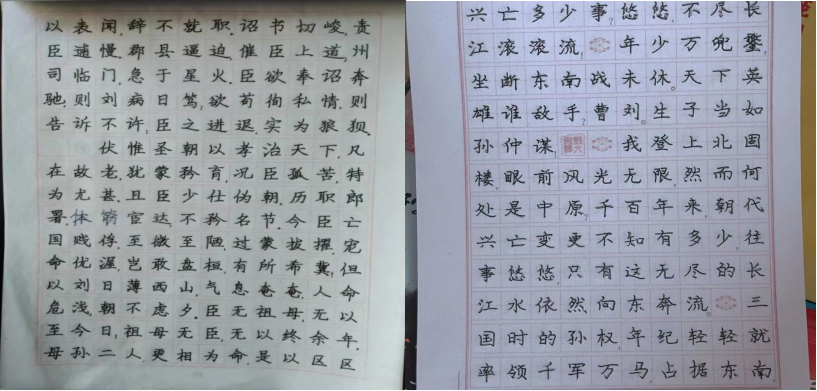 以表闻,辞不就职.诏书切峻,责
臣逋慢.郡县逼迫,催臣上道,州
司临门,急于星火.臣欲奉诏奔
驰,则刘病日笃,欲苟徇私情,则
告诉不许,臣之进退,实为狼狈.
伏惟圣朝以孝治天下.凡
在故老,犹蒙矜育,况臣孤苦,特
为尤甚.且臣少仕伪朝,历职郎
署.体官达,不矜名节.今臣亡
国贱俘,至微至陋,过蒙拔擢,宠
命优渥,岂敢盘桓,有所希冀,但
以刘日薄西山,气息奄奄,人命
危浅,朝不虑夕.臣无祖母,无以
至今日,祖母无臣,无以终余年.
母孙二人,更相为命,是以区区
兴亡多少事,悠悠,不尽长
江滚滚流,年少万兜鍪,
坐断东南战未休。天下英
雄谁敌手,曹刘。生子当如
孙仲谋,我登上北固
楼,眼前风光无限,然而何
处是中原,千百年来,朝代
兴亡变更不知有多少,往
事悠悠,只有这无尽的长
江水依然向东奔流。三
国时的孙权,年纪轻轻就
率领千军万马占据东南